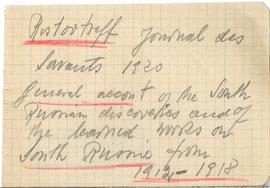 Rostovtzeff Journal des
Savants 1920
General account of the South
Russian discoveries and of
the learned works on
South Russia from
1912-1918